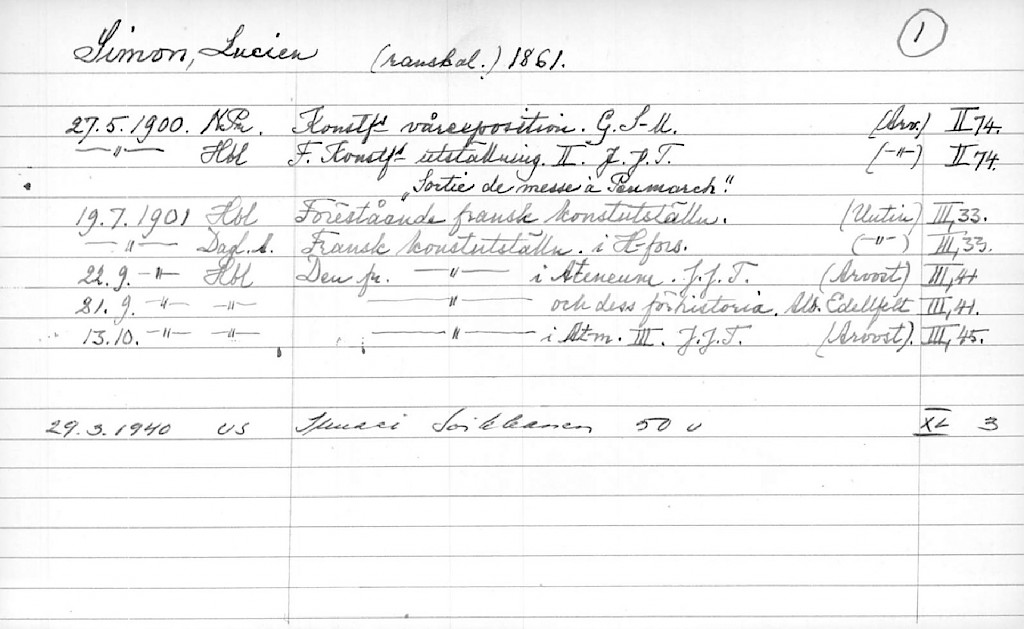 1
Simon, Lucien (ranskal.) 1861.
27.5.1900. N.Pr. Konstf:s vårexposition. G. S-M. (Arv.) II 74.
—"— Hbl F. Konstf:s utställning. II. J.J.T. (-"-) II 74.
"Sortie de messe à Penmarch."
19.7.1901 Hbl Förestående fransk konstutställn. (Uutin) III, 33.
—"— Dagl. A. Fransk konstutställn. i H-fors. (-"-) III, 33.
22.9. —"— Hbl Den fr. —"— i Ateneum. J.J.T. (Arvost) III, 41
21.9. —"— —"— —"— och dess förhistoria. Alb. Edelfelt III, 41.
13.10. —"— —"— —"— i Atm. III. J.J.T. (Arvost). III, 45.
29.3.1940 US Soikkanen 50 v XL 3